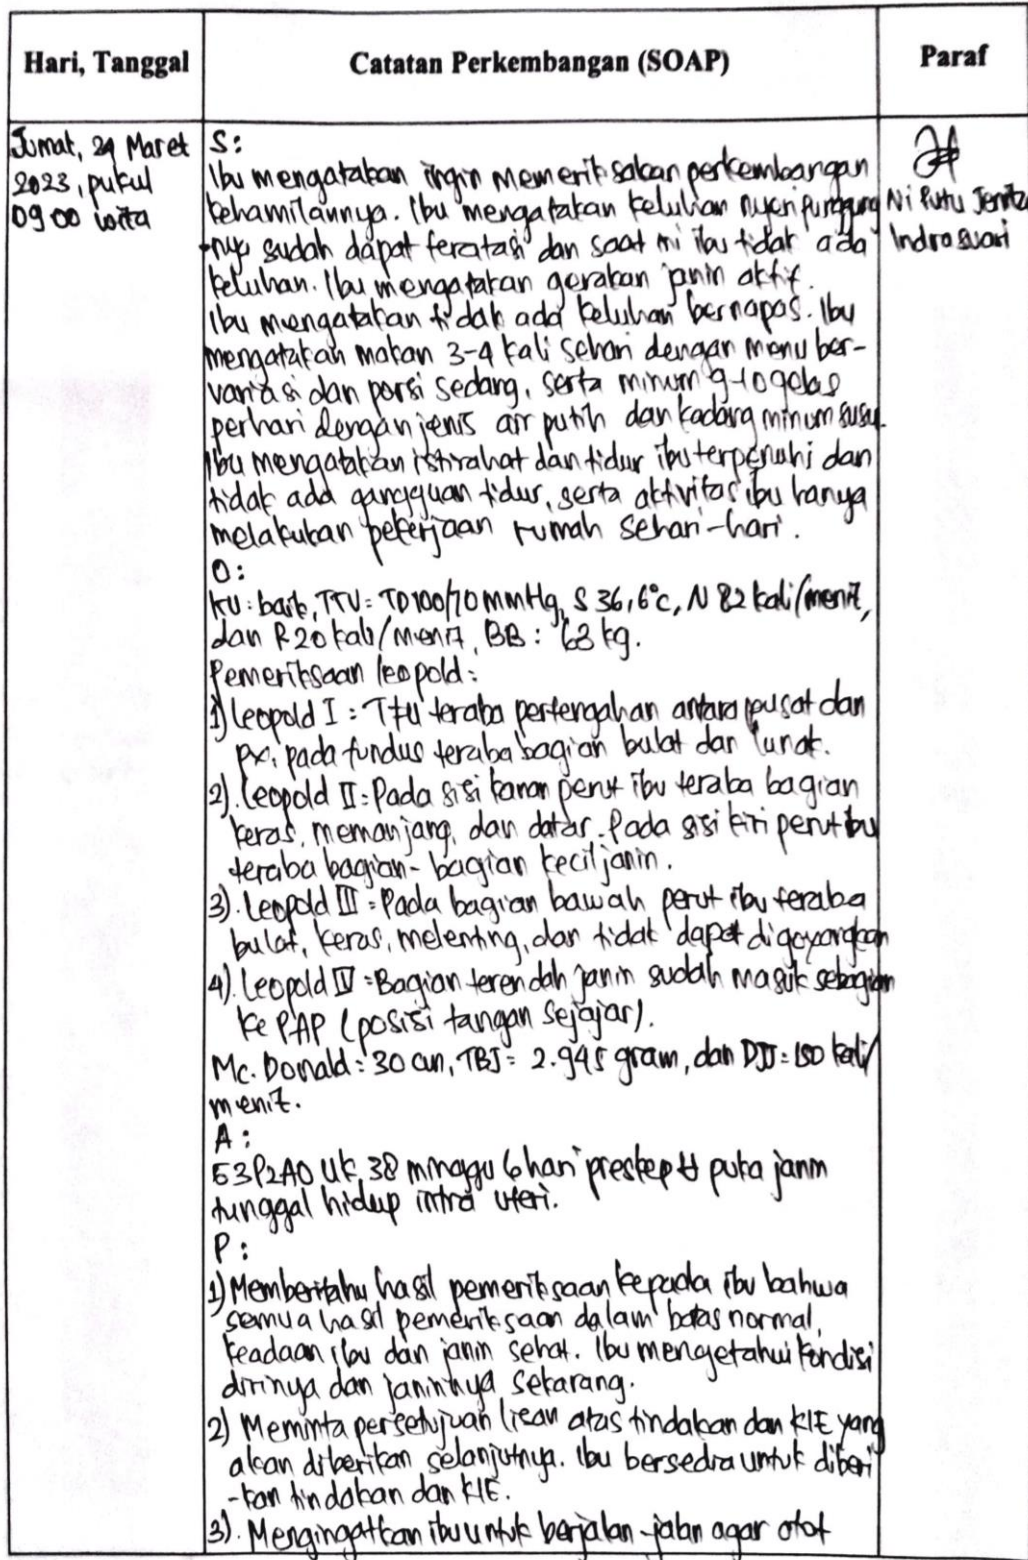 Hari, Tanggal
Catatan Perkembangan (SOAP)
Paraf
Jumat, 24 Maret
2023, pukul
09.00 wita
S:
Ibu mengatakan ingin memeriksakan perkembangan
kehamilannya. Ibu mengatakan keluhan nyeri punggung
-nya sudah dapat teratasi dan saat ini ibu tidak ada
keluhan. Ibu mengatakan gerakan janin aktif.
Ibu mengatakan tidak ada keluhan bernapas. Ibu
mengatakan makan 3-4 kali sehari dengan menu ber-
variasi dan porsi sedang, serta minum 9-10 gelas
perhari dengan jenis air putih dan kadang minum susu.
Ibu mengatakan istirahat dan tidur ibu terpenuhi dan
tidak ada gangguan tidur, serta aktivitas ibu hanya
melakukan pekerjaan rumah sehari-hari.
O:
KU: baik, TTV= TD 100/70 mmHg, S 36,6°c, N 82 kali/menit,
dan R 20 kali/menit, BB: 63 kg.
Pemeriksaan leopold:
1) Leopold I: TFU teraba pertengahan antara pusat dan
px, pada fundus teraba bagian bulat dan lunak.
2). Leopold II: Pada sisi kanan perut ibu teraba bagian
keras, memanjang, dan datar. Pada sisi kiri perut ibu
teraba bagian-bagian kecil janin.
3). Leopold III: Pada bagian bawah perut ibu teraba
bulat, keras, melenting, dan tidak dapat digoyangkan
4). Leopold IV: Bagian terendah janin sudah masuk sebagian
ke PAP (posisi tangan sejajar).
Mc. Donald: 30 cm, TBJ= 2.945 gram, dan DJJ= 150 kali/
menit.
A:
G3P2A0 UK 38 minggu 6 hari preskep U puka janin
tunggal hidup intra uteri.
P:
1) Memberitahu hasil pemeriksaan kepada ibu bahwa
semua hasil pemeriksaan dalam batas normal,
keadaan ibu dan janin sehat. Ibu mengetahui kondisi
dirinya dan janinnya sekarang.
2) Meminta persetujuan lisan atas tindakan dan KIE yang
akan diberikan selanjutnya. Ibu bersedia untuk diberi
-kan tindakan dan KIE.
3). Mengingatkan ibu untuk berjalan-jalan agar otot
Ni Putu
Indraswari